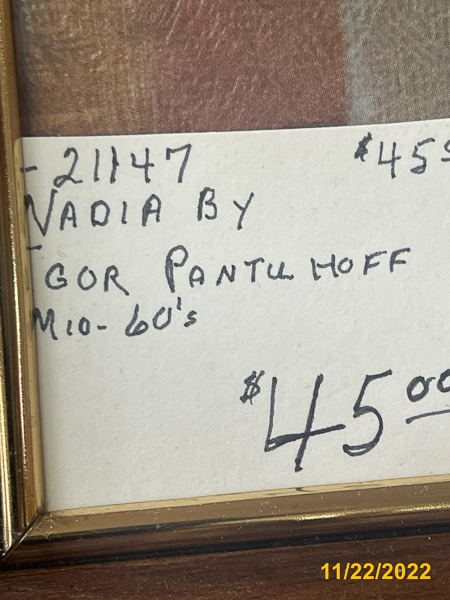 -21147
$45
NADIA BY
IGOR PANTUHOFF
MID-60's
$45.00
11/22/2022